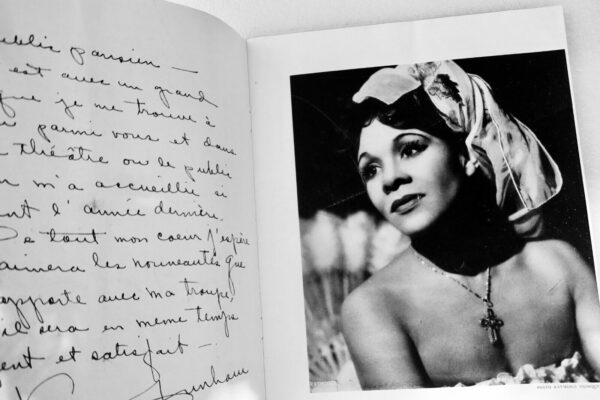 ublic parisien —
est avec un grand
que je me trouve à
parmi vous et dans
théâtre ou le public
m'a accueillie si
ent l'année dernière.
De tout mon coeur j'espère
aimera les nouveautés que
apporte avec ma troupe,
il sera en même temps
ent et satisfait —
Dunham
PHOTO